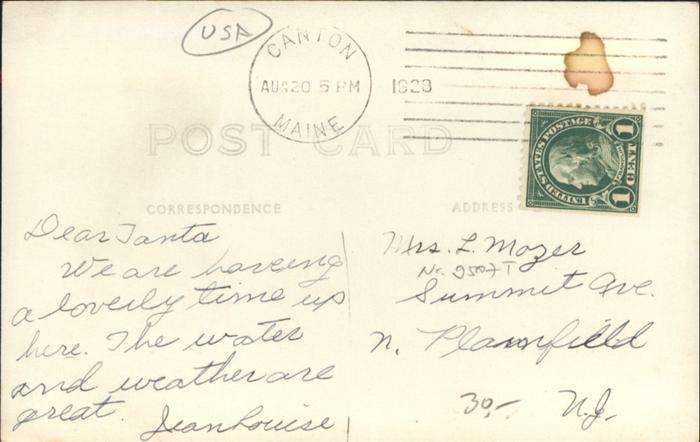 USA
CANTON
AUG 20 5 PM
1928
MAINE
POST CARD
UNITED STATES POSTAGE
1 1
CENT
CORRESPONDENCE
ADDRESS
Dear Tanta
We are having
a loverly time up
here. The water
and weather are
great. Jeanhouise
Mrs. L. Mozer
Summit Ave.
N. Plainfield
30,- N.J.